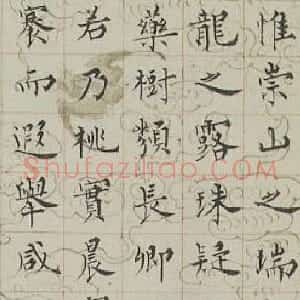 惟崇山之瑞
龍之露珠疑
藥樹類長卿
若乃桃實晨
褰而遐舉咸
Shufaziliao.COM